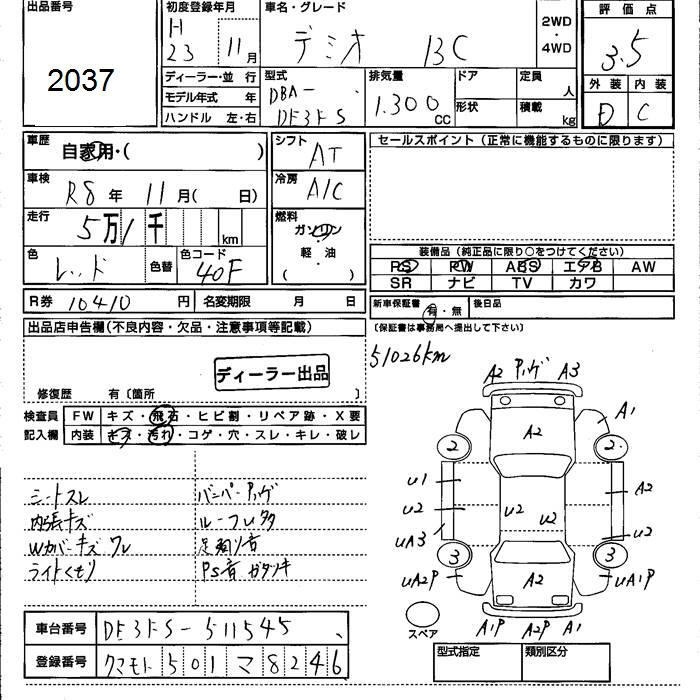 出品番号
2037
初度登録年月
H
23 11月
車名・グレード
デミオ 13C
2WD
・
4WD
評価点
3.5
外装 内装
D C
ディーラー・並 行
モデル年式 年
ハンドル 左・右
型式
DBA-
DE3FS
排気量
1.300 CC
ドア
形状
定員
人
積載
kg
車歴
自家用・( )
車検
R8年 11月( 日)
走行
5万1千 km
色
レッド
色替
色コード
40F
シフト
AT
冷房
A/C
燃料
ガソリン
・
軽油
( )
セールスポイント(正常に機能するものに限ります)
装備品(純正品に限り○をつけてください)
PS PW ABS エアB AW
SR ナビ TV カワ
R券 10410円 名変期限 月 日
新車保証書 有・無 後日品
(保証書は事務局へ提出して下さい)
出品店申告欄(不良内容・欠品・注意事項等記載)
ディーラー出品
修復歴 有〔箇所 〕
51026km
検査員
記入欄
FW キズ・飛石・ヒビ割・リペア跡・X要
内装 キズ・汚れ・コゲ・穴・スレ・キレ・破レ
シートスレ
内張キズ
Wカバーキズ ワレ
ライトくもり
バンパーアッゲ
ルーフレタタ
足廻り音
PS音 ガタツキ
A2 アッゲ A3
A1
A2
2 2
U1
A2
U2
U2
U2
U2
UA3
3 3
UA2P
UA1P
A2
A1P A2P A1
スペア
車台番号 DE3FS-511545
登録番号 クマモト 501 マ 8246
型式指定 類別区分